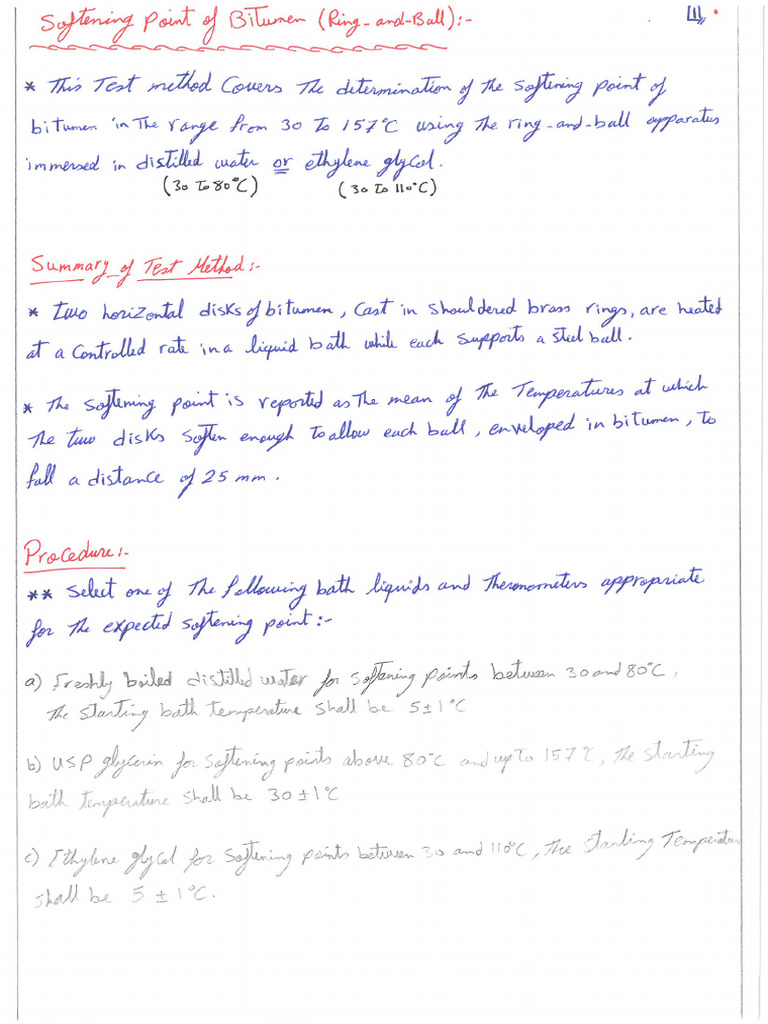 Softening Point of Bitumen (Ring-and-Ball):-
[1]
* This Test method Covers The determination of the softening point of
bitumen in The range from 30 To 157°C using The ring-and-ball apparatus
immersed in distilled water or ethylene glycol.
(30 To 80°C) (30 To 110°C)
Summary of Test Method:-
* Two horizontal disks of bitumen, Cast in shouldered brass rings, are heated
at a Controlled rate in a liquid bath while each supports a steel ball.
* The softening point is reported as The mean of The Temperatures at which
The two disks soften enough to allow each ball, enveloped in bitumen, to
fall a distance of 25 mm.
Procedure:-
** Select one of The following bath liquids and Thermometers appropriate
for The expected softening point:-
a) Freshly boiled distilled water for softening points between 30 and 80°C,
The starting bath temperature shall be 5±1°C
b) USP glycerin for softening points above 80°C and up To 157°C, The starting
bath temperature shall be 30±1°C
c) Ethylene glycol for softening points between 30 and 110°C, The starting Temperature
shall be 5 ± 1°C.